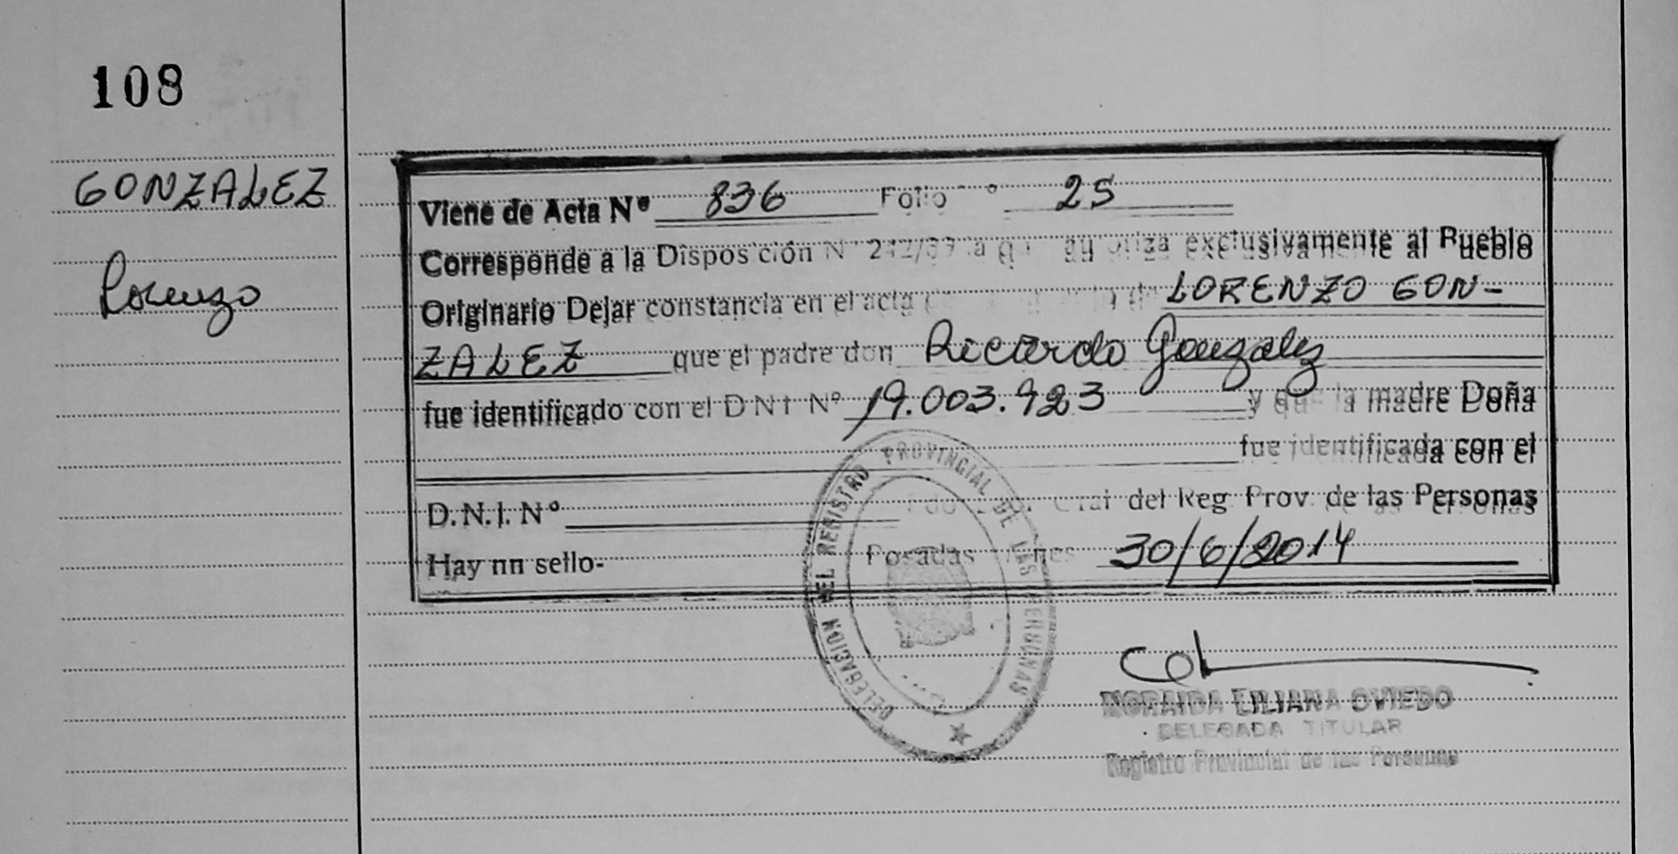 108
GONZALEZ
Lorenzo
Viene de Acta Nº 836 Folio º 25
Corresponde a la Disposición N 242/99 exclusivamente al Pueblo
Originario Dejar constancia en el acta de LORENZO GON-
ZALEZ que el padre don Ricardo Gonzalez
fue identificado con el D N I Nº 19.003.923 y que la madre Doña
fue identificada con el
D.N.I. Nº del Reg Prov. de las Personas
Hay nn sello- Posadas 30/6/2014
DELEGACION DEL REGISTRO PROVINCIAL DE LAS PERSONAS
NORAIDA LILIANA OVIEDO
DELEGADA TITULAR
Registro Provincial de las Personas